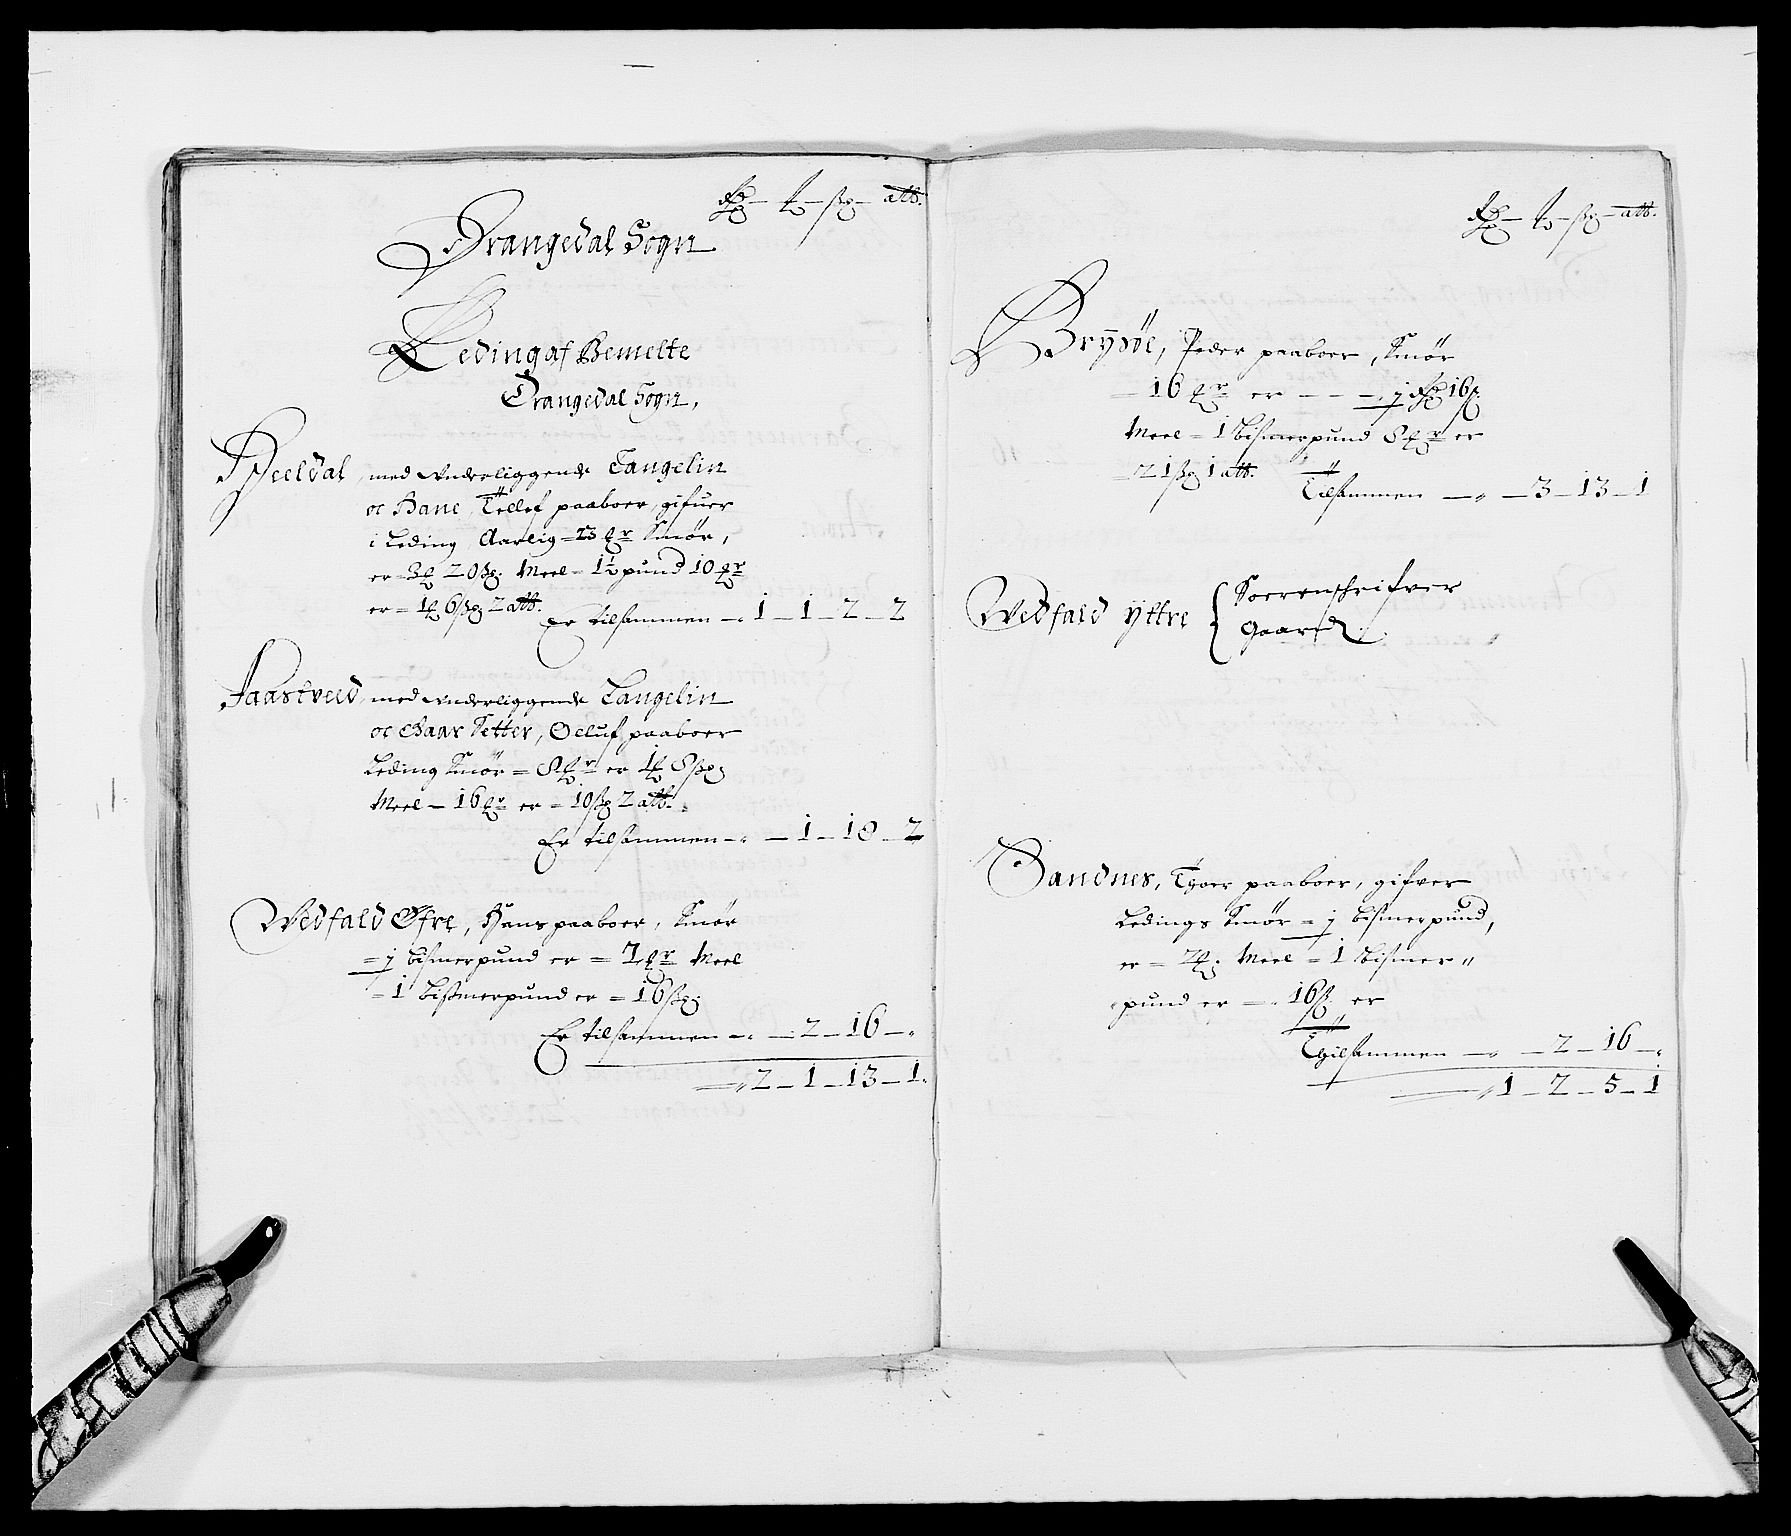 Rdr — ƒ — ßk — alb.
Drangedal Sogn
Leding af Bemelte
Drangedal Sogn,
Heeldal, med underliggende Tangelin
oc Bane, Tellef paaboer, gifuer
i Leding Aarlig = 23 mkr Smør,
er = 3 20 ßk. Meel = 1½ pund 10 mkr
er = 1 6 ßk 2 alb.
Er tilsammen — 1 — 1 — 2 — 2
Jaastveed, med underliggende Langelin
oc Setter, Oeluf paaboer
Leding Smør = 8 mkr er 1 8 ßk
Meel — 16 mkr er = 10 ßk 2 alb.
Er tilsammen — 1 — 18 — 2
Vedfald Øfre, Hans paaboer, Smør
= j bismerpund er = Meel
= 1 bismerpund er = 16 ßk.
Er tilsammen — 2 — 16 —
2 — 1 — 13 — 1
Rdr — ƒ — ßk — alb.
Brysøe, Peder paaboer, Smør
— 16 mkr er — — — j Rdr 16 ß.
Meel = 1 bismerpund 8 mkr er
= 21 ßk 1 alb.
Tilsammen — 3 — 13 — 1
Vedfald yttre { Soerenschrifver
Gaard
Sandnes, Thoer paaboer, gifver
Ledings Smør = j bismerpund,
er = 2. Meel = 1 bismer"
pund er — 16 ß. er
Thilsammen — 2 — 16 —
1 — 2 — 5 — 1